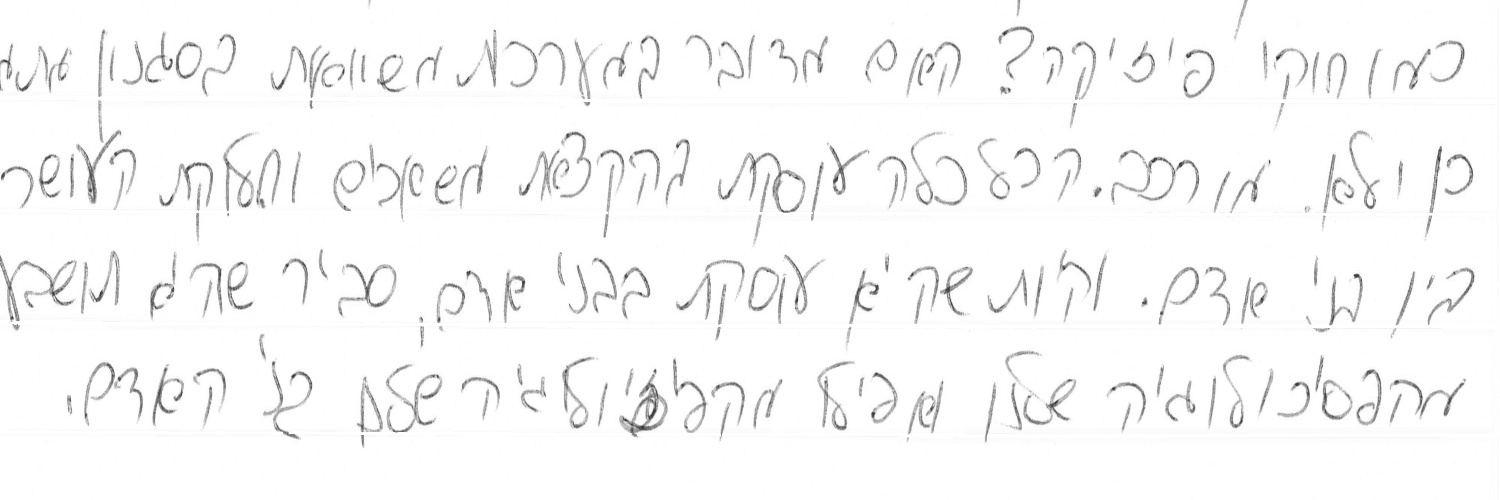 כמו חוקי פיזיקה? האם מדובר במערכת משוואות בסגנון
כן ולא. מורכב. הכלכלה עוסקת בהקצאת משאבים וחלוקת העושר
בין בני אדם. והיות שהיא עוסקת בבני אדם, סביר שהיא תושפע
מהפסיכולוגיה שלנו ואפילו מהפיזיולוגיה שלנו בני האדם.